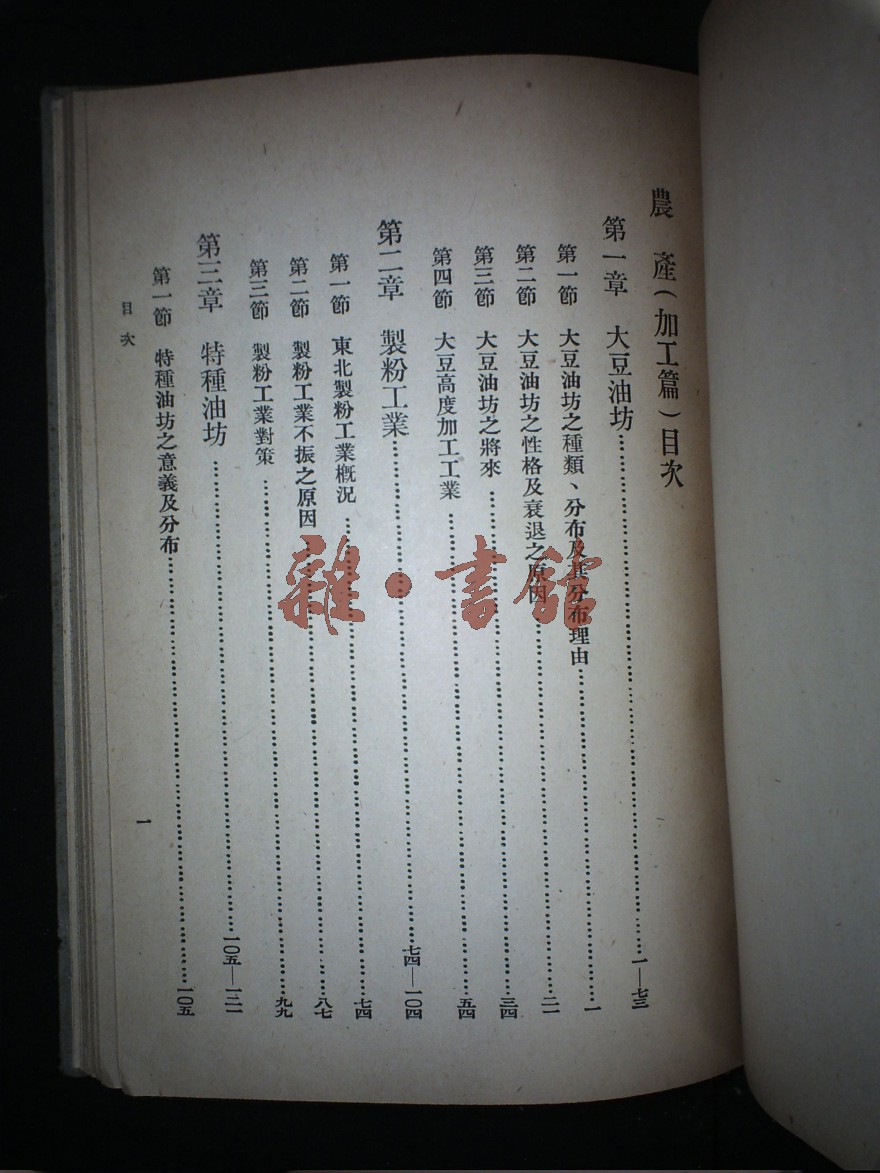 農產(加工篇)目次
第一章 大豆油坊……一—七三
第一節 大豆油坊之種類、分布及其分布理由……一
第二節 大豆油坊之性格及衰退之原因……二一
第三節 大豆油坊之將來……三四
第四節 大豆高度加工工業……五四
第二章 製粉工業……七四—一〇四
第一節 東北製粉工業概況……七四
第二節 製粉工業不振之原因……八七
第三節 製粉工業對策……九九
第三章 特種油坊……一〇五—一二一
第一節 特種油坊之意義及分布……一〇五
目次
一
雜·書館